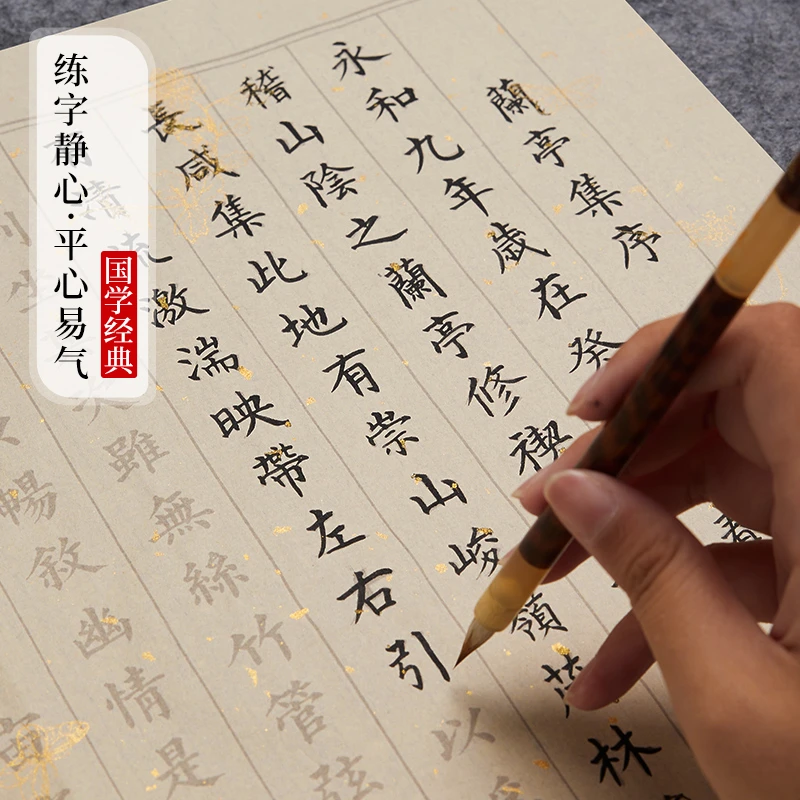 练字静心·平心易气
国学经典
蘭亭集序
永和九年歲在癸
稽山陰之蘭亭修禊
長咸集此地有崇山峻領茂林
清流激湍映帶左右引以
坐
雖無絲竹管弦
暢敘幽情是